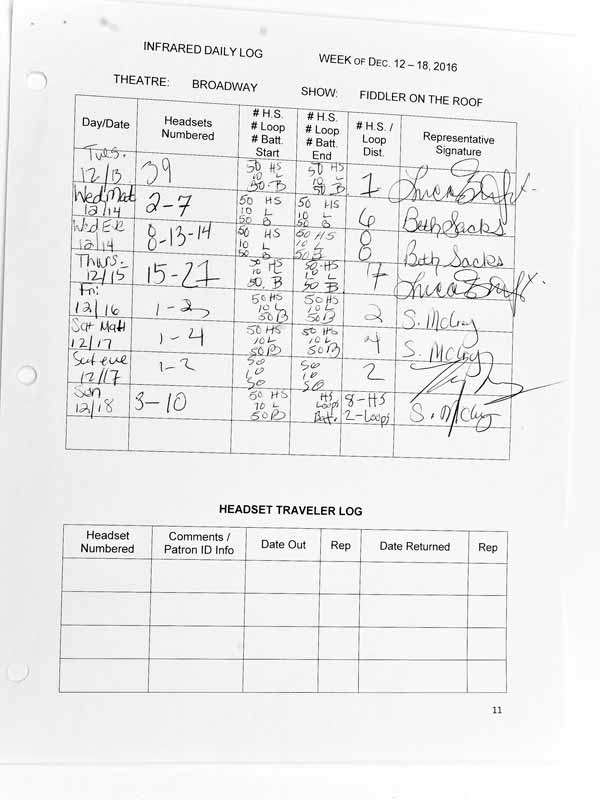 INFRARED DAILY LOG
WEEK OF DEC. 12 – 18, 2016
THEATRE: BROADWAY SHOW: FIDDLER ON THE ROOF
Day/Date Headsets Numbered # H.S. # Loop # Batt. Start # H.S. # Loop # Batt. End # H.S. / Loop Dist. Representative Signature
Tues. 12/13 39 50 HS 10 L 50 B 50 HS 10 L 50 B
Wed Mat 12/14 2-7 50 HS 10 L 50 B 50 HS 10 L 50 B 6 Beth Sacks
12/14 8-13-14 50 HS 10 L 50 B 50 HS 10 L 50 B 8 Beth Sacks
Thurs. 12/15 15-21 50 HS 10 L 50 B 50 HS 10 L 50 B 7
Fri: 12/16 1-2 50 HS 10 L 50 B 50 HS 10 L 50 B 2
Sat Mat 12/17 1-4 50 HS 10 L 50 B 50 HS 10 L 50 B 4
Sat eve 12/17 1-2 50 10 50 50 10 50 2
Sun 12/18 3-10 50 HS 10 L 50 B HS Loops Batt. 8-HS 2-Loops
HEADSET TRAVELER LOG
Headset Numbered Comments / Patron ID Info Date Out Rep Date Returned Rep
11